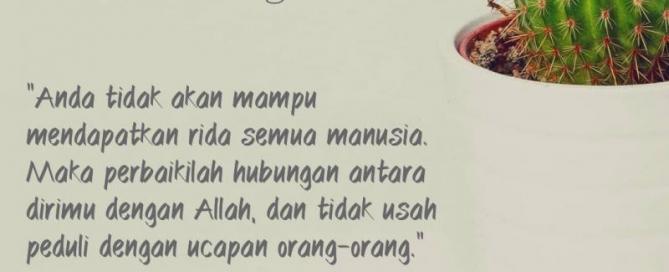 "Anda tidak akan mampu
mendapatkan rida semua manusia.
Maka perbaikilah hubungan antara
dirimu dengan Allah, dan tidak usah
peduli dengan ucapan orang-orang."